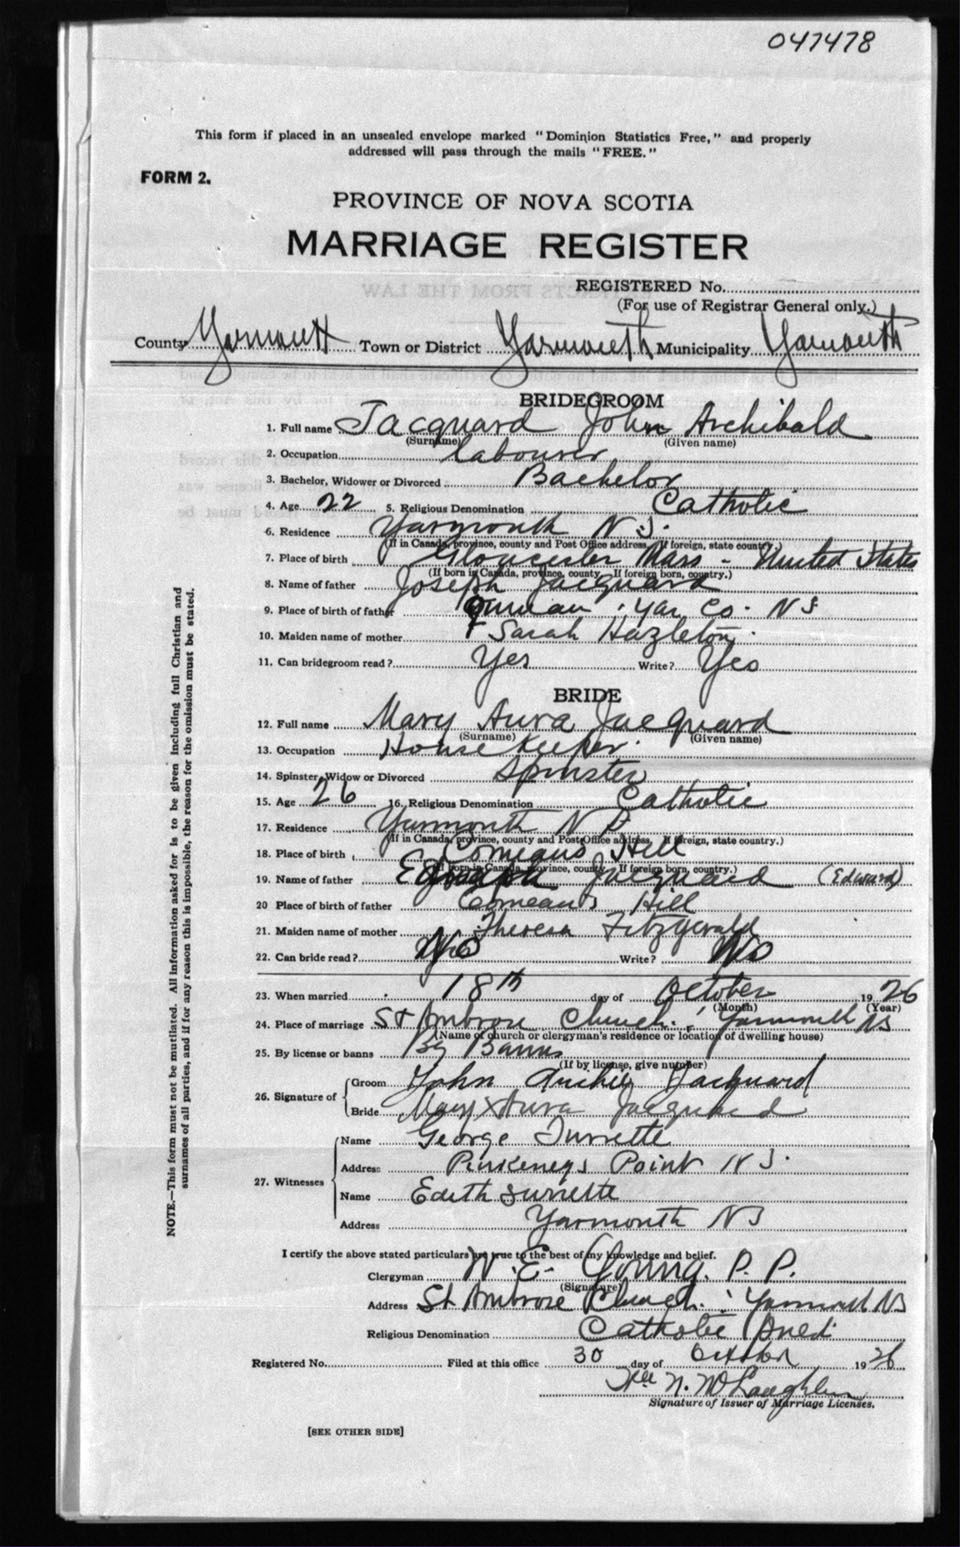 047478
This form if placed in an unsealed envelope marked "Dominion Statistics Free," and properly
addressed will pass through the mails "FREE."
FORM 2.
PROVINCE OF NOVA SCOTIA
MARRIAGE REGISTER
REGISTERED No.
(For use of Registrar General only.)
County Yarmouth Town or District Yarmouth Municipality Yarmouth
BRIDEGROOM
1. Full name Jacquard John Archibald
(Surname) (Given name)
2. Occupation labourer
3. Bachelor, Widower or Divorced Bachelor
4. Age 22 5. Religious Denomination Catholic
6. Residence Yarmouth N.S.
(If in Canada, province, county and Post Office address. If foreign, state country.)
7. Place of birth Gloucester Mass - United States
(If born in Canada, province, county. If foreign born, country.)
8. Name of father Joseph Jacquard
9. Place of birth of father Yar Co. NS
10. Maiden name of mother Sarah Hazleton
11. Can bridegroom read? Yes Write? Yes
BRIDE
12. Full name Mary Aura Jacquard
(Surname) (Given name)
13. Occupation House Keeper.
14. Spinster, Widow or Divorced Spinster
15. Age 26 16. Religious Denomination Catholic
17. Residence Yarmouth N S
(If in Canada, province, county and Post Office address. If foreign, state country.)
18. Place of birth Comeaus Hill
(If born in Canada, province, county. If foreign born, country.)
19. Name of father Jacquard (Edward)
20 Place of birth of father Comeau's Hill
21. Maiden name of mother Theresa Fitzgerald
22. Can bride read? No Write? No
23. When married 18th day of October 1926
(Month) (Year)
24. Place of marriage St Ambrose Church, Yarmouth NS
(Name of church or clergyman's residence or location of dwelling house)
25. By license or banns By Banns
(If by license, give number)
26. Signature of Groom John Archie Jacquard
Bride Mary X Aura Jacquard
27. Witnesses Name George Surrette
Address Pinkeneys Point N S.
Name Edith Surrette
Address Yarmouth NS
I certify the above stated particulars are true to the best of my knowledge and belief.
Clergyman W. E. Young. P. P.
(Signature)
Address St Ambrose Church. Yarmouth NS
Religious Denomination Catholic
Registered No. Filed at this office 30 day of October 1926
N. McLaughlin
Signature of Issuer of Marriage Licenses.
[SEE OTHER SIDE]
NOTE.—This form must not be mutilated. All information asked for is to be given including full Christian and
surnames of all parties, and if for any reason this is impossible, the reason for the omission must be stated.